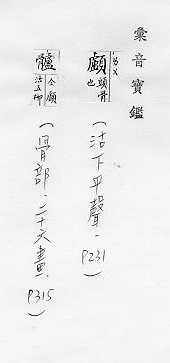 彙音寶鑑
顱 ㄌㄨ 頭骨也
(沽下平聲, P231)
髗 仝顱 沽五柳
(骨部, 二十六畫, P315)